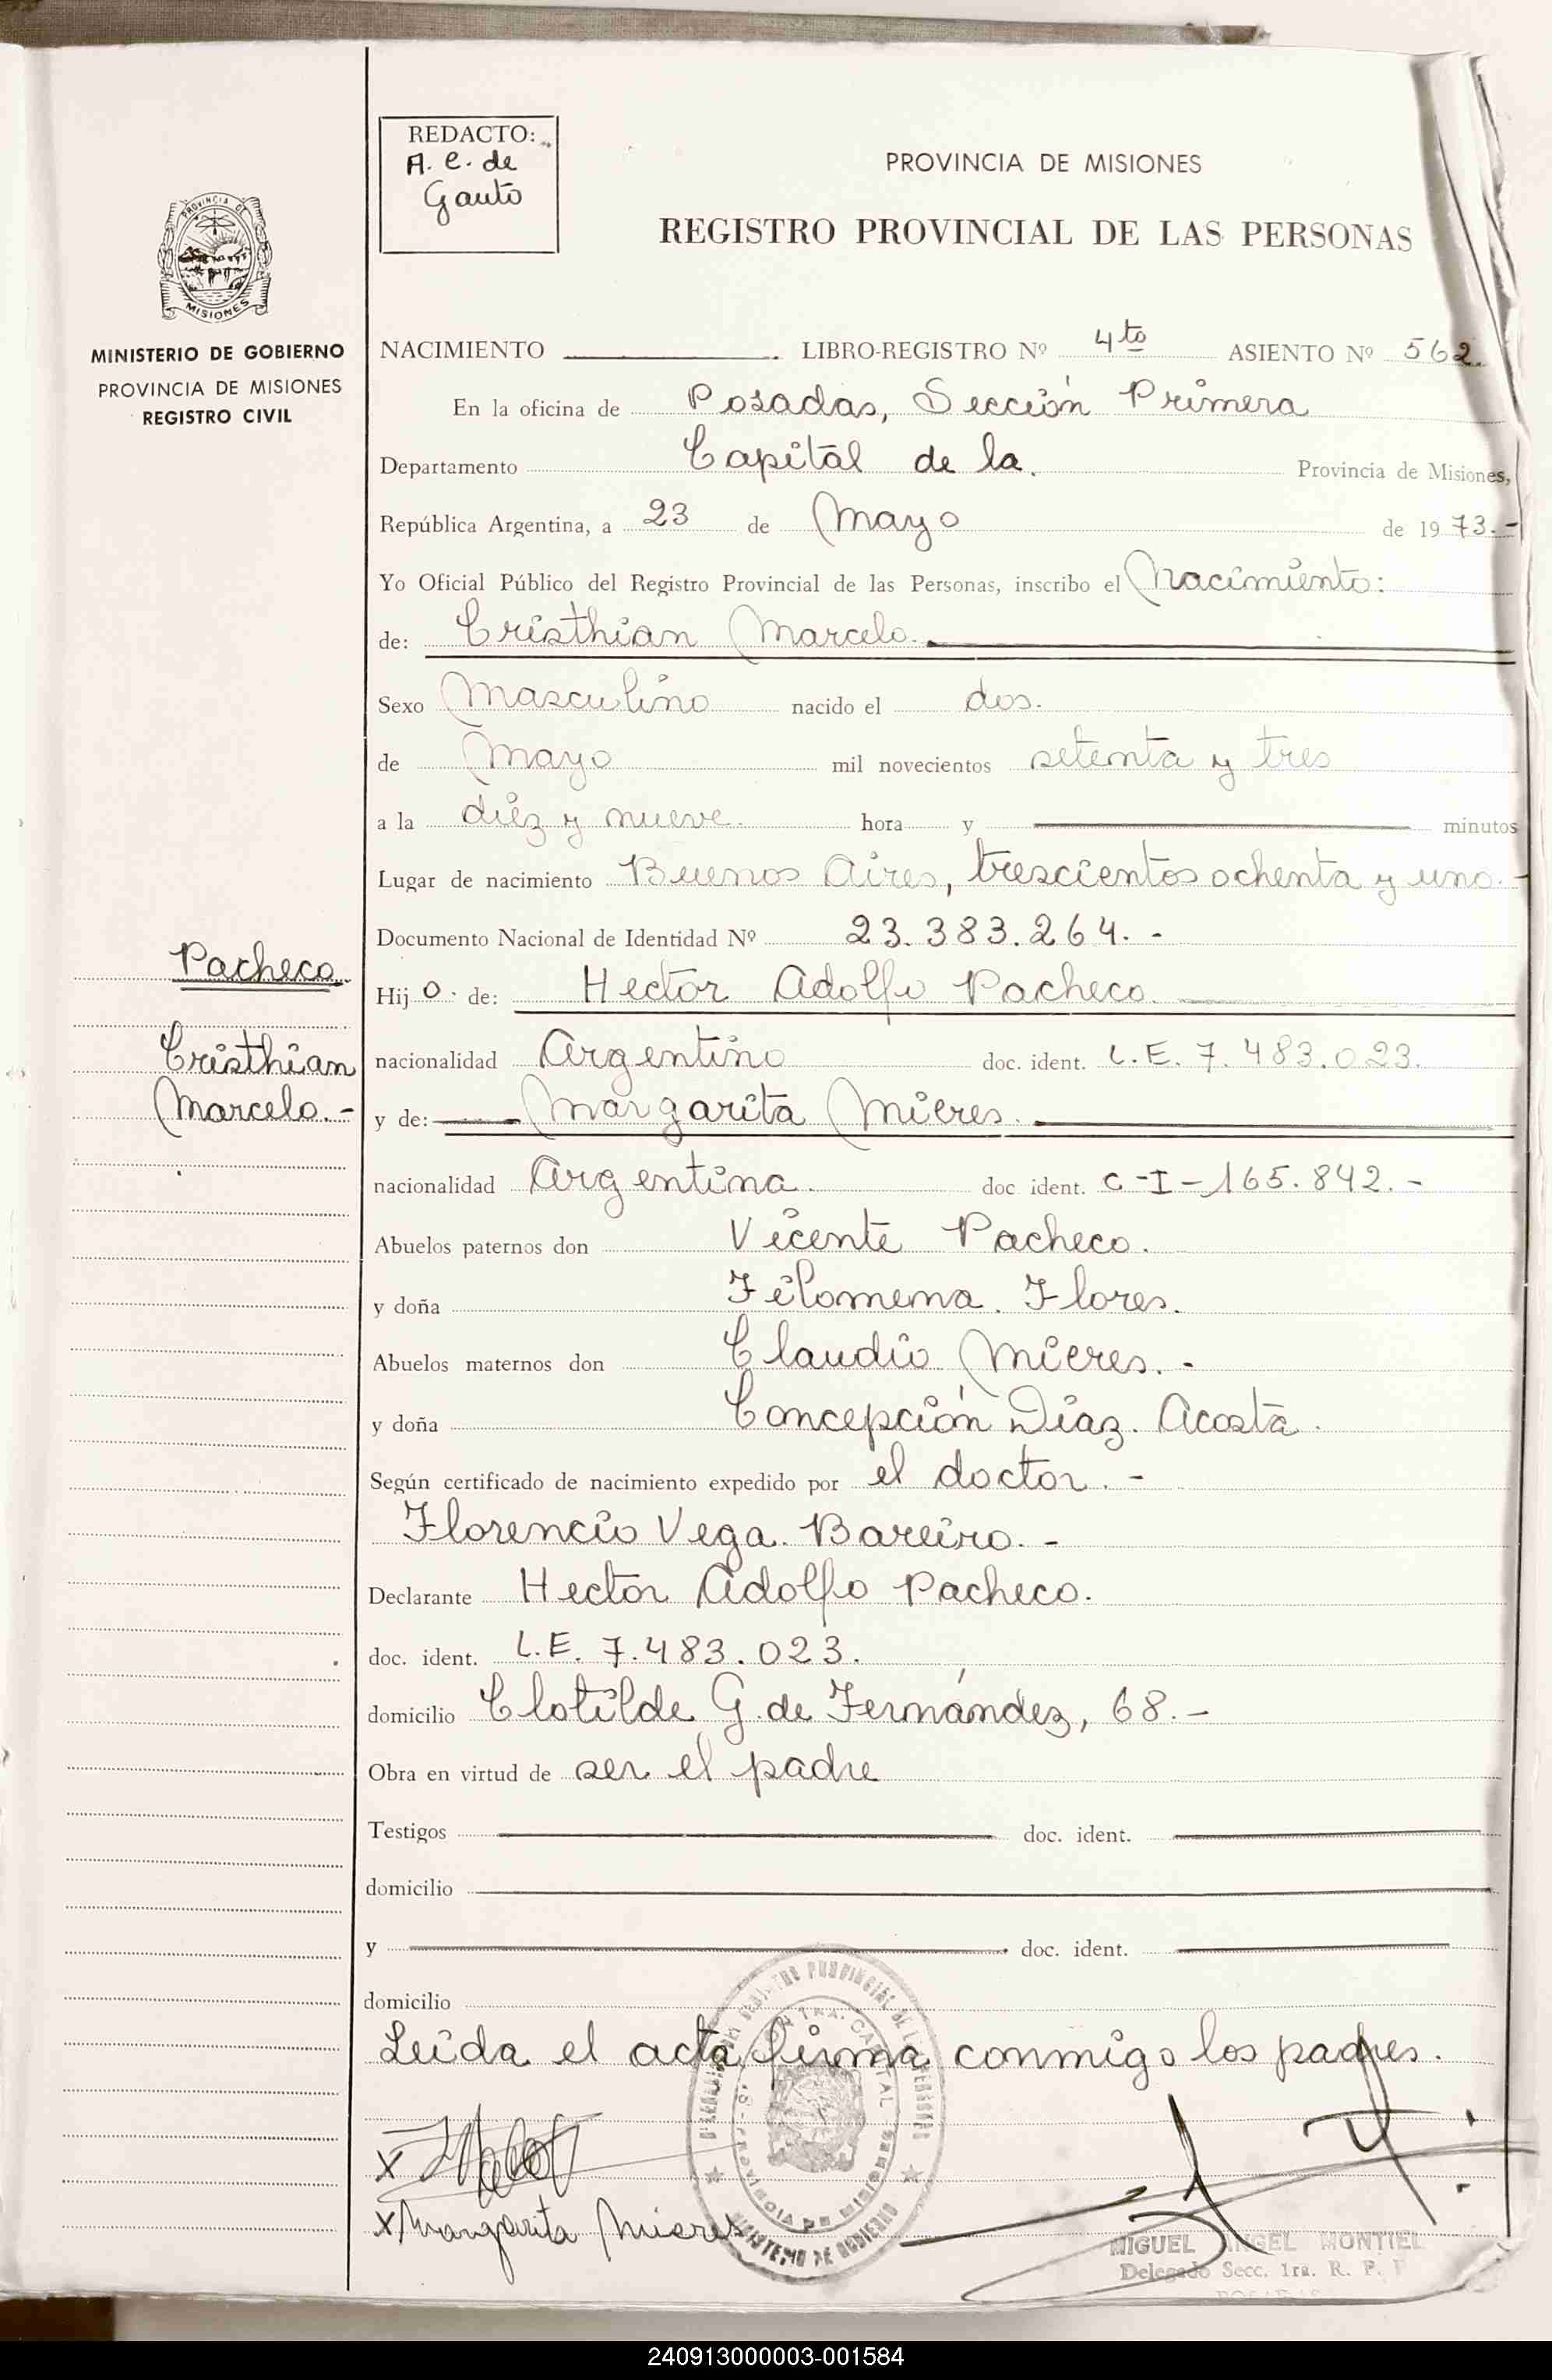 REDACTO:
A. C. de
Gauto
PROVINCIA DE MISIONES
REGISTRO PROVINCIAL DE LAS PERSONAS
PROVINCIA DE
MISIONES
MINISTERIO DE GOBIERNO
PROVINCIA DE MISIONES
REGISTRO CIVIL
NACIMIENTO LIBRO-REGISTRO Nº 4to ASIENTO Nº 562
En la oficina de Posadas, Sección Primera
Departamento Capital de la. Provincia de Misiones,
República Argentina, a 23 de Mayo de 1973.-
Yo Oficial Público del Registro Provincial de las Personas, inscribo el Nacimiento:
de: Cristhian Marcelo.
Sexo Masculino nacido el dos.
de Mayo mil novecientos setenta y tres
a la diez y nueve. hora y minutos
Lugar de nacimiento Buenos Aires, trescientos ochenta y uno.-
Documento Nacional de Identidad Nº 23.383.264.-
Pacheco
Hijo. de: Hector Adolfo Pacheco.
Cristhian
Marcelo.-
nacionalidad Argentino doc. ident. L.E. 7.483.023.
y de: Margarita Mieres.
nacionalidad Argentina. doc ident. C-I-165.842.-
Abuelos paternos don Vicente Pacheco.
y doña Filomena. Flores.
Abuelos maternos don Claudio Mieres.-
y doña Concepción Diaz. Acosta.
Según certificado de nacimiento expedido por el doctor.-
Florencio Vega. Bareiro.-
Declarante Hector Adolfo Pacheco.
doc. ident. L.E. 7.483.023.
domicilio Clotilde G. de Fernández, 68.-
Obra en virtud de ser el padre
Testigos doc. ident.
domicilio
y doc. ident.
domicilio
Leida el acta, firma conmigo los padres.
x
x Margarita Mieres
PROVINCIA DE MISIONES
MINISTERIO DE GOBIERNO
MIGUEL ANGEL MONTIEL
Delegado Secc. 1ra. R. P.
240913000003-001584